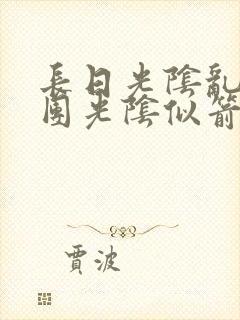 長日光陰亂
團光陰似箭
賈波